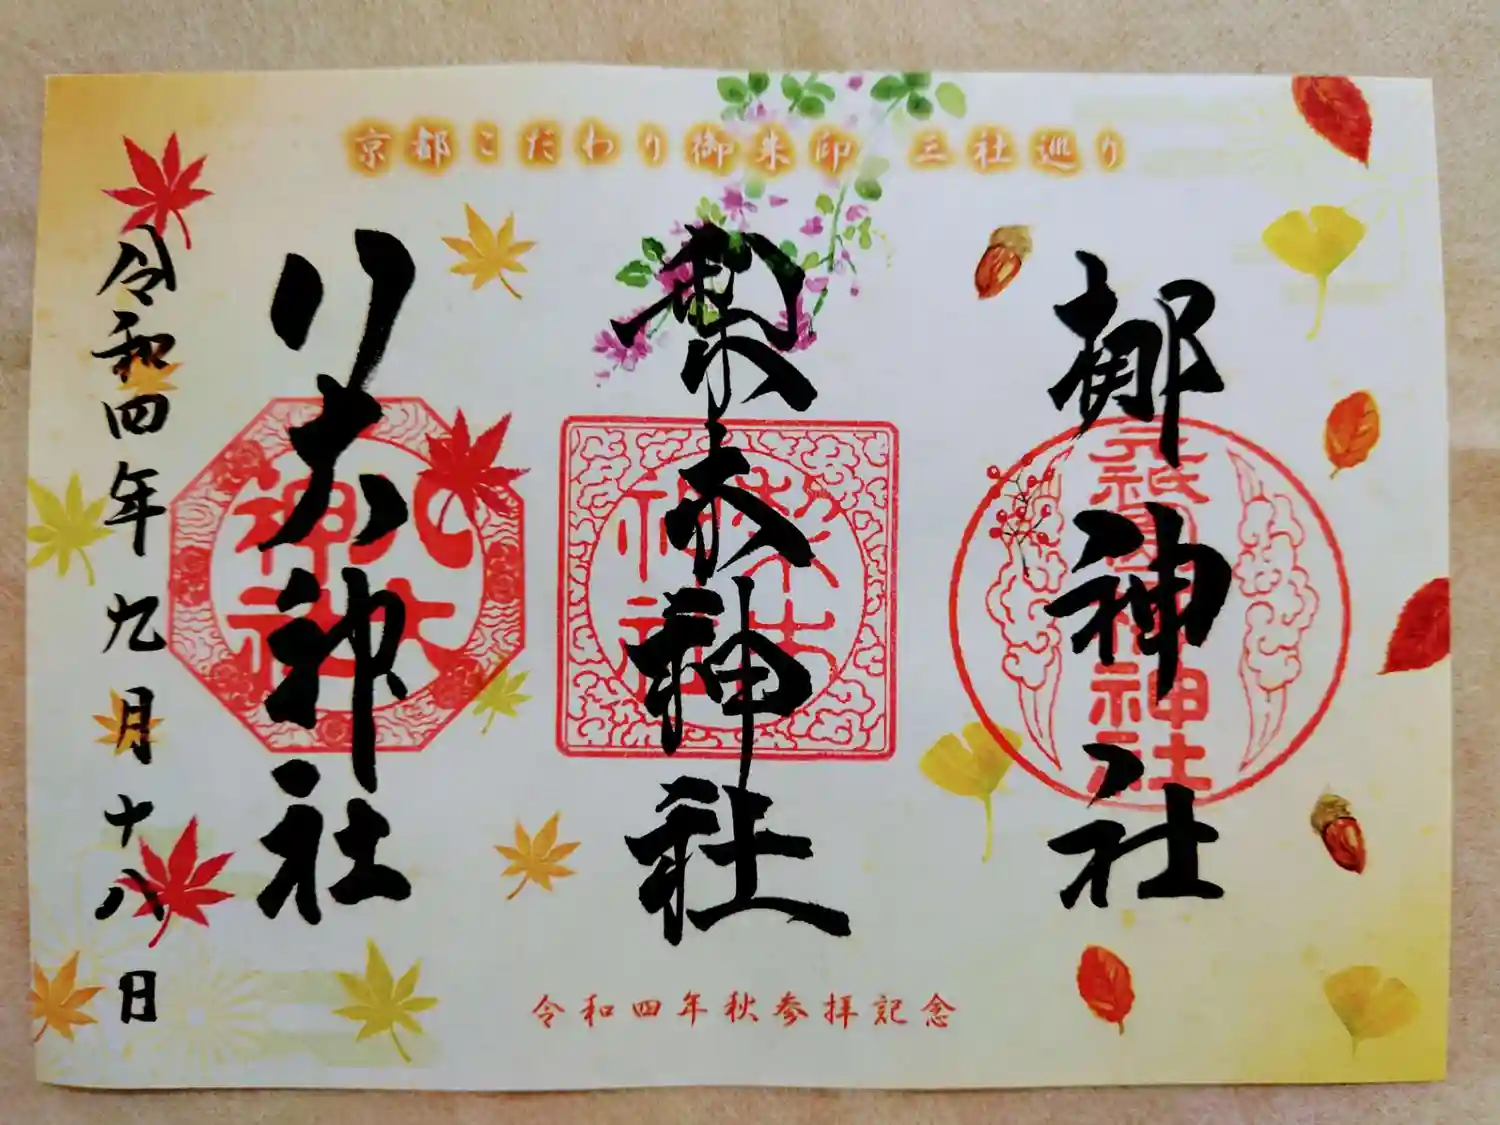 京都こだわり御朱印 三社巡り
梛神社
元祇園梛神社
梨木神社
梨木
神社
八大神社
八大
神社
令和四年九月十八日
令和四年秋参拝記念